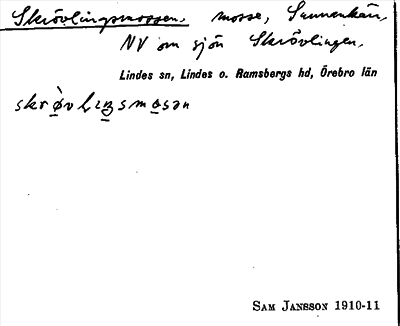 Skrövlingsmossen, mosse, Sunnankärr,
NV om sjön Skrövlingen.
Lindes sn, Lindes o. Ramsbergs hd, Örebro län
SAM JANSSON 1910-11